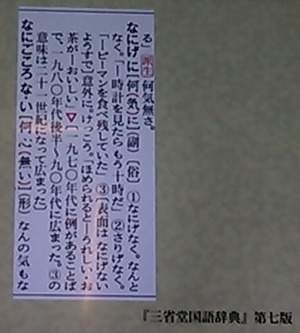 る」[派生]何気無さ。
なにげに[何(気)に](副)〔俗〕①なにげなく。なんと
なく。「―時計を見たらもう十時だ」②さりげなく。
「―ピーマンを食べ残していた」③〔表面はなにげない
ようすで〕意外に。けっこう。「ほめられると―うれしい・お
茶が―おいしい」▽〔一九七〇年代に例があることば
で、一九八〇年代後半〜九〇年代に広まった。③の
意味は二十一世紀になって広まった〕
なにごころな・い[何心(無)い](形)なんの気もな
『三省堂国語辞典』第七版